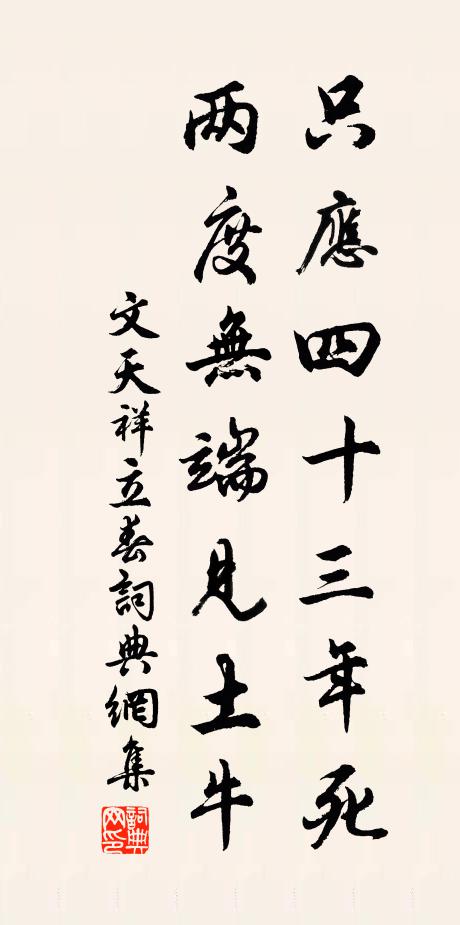 只應四十三年死
两度無端見土牛
文天祥立春詞典網集
詞典网印